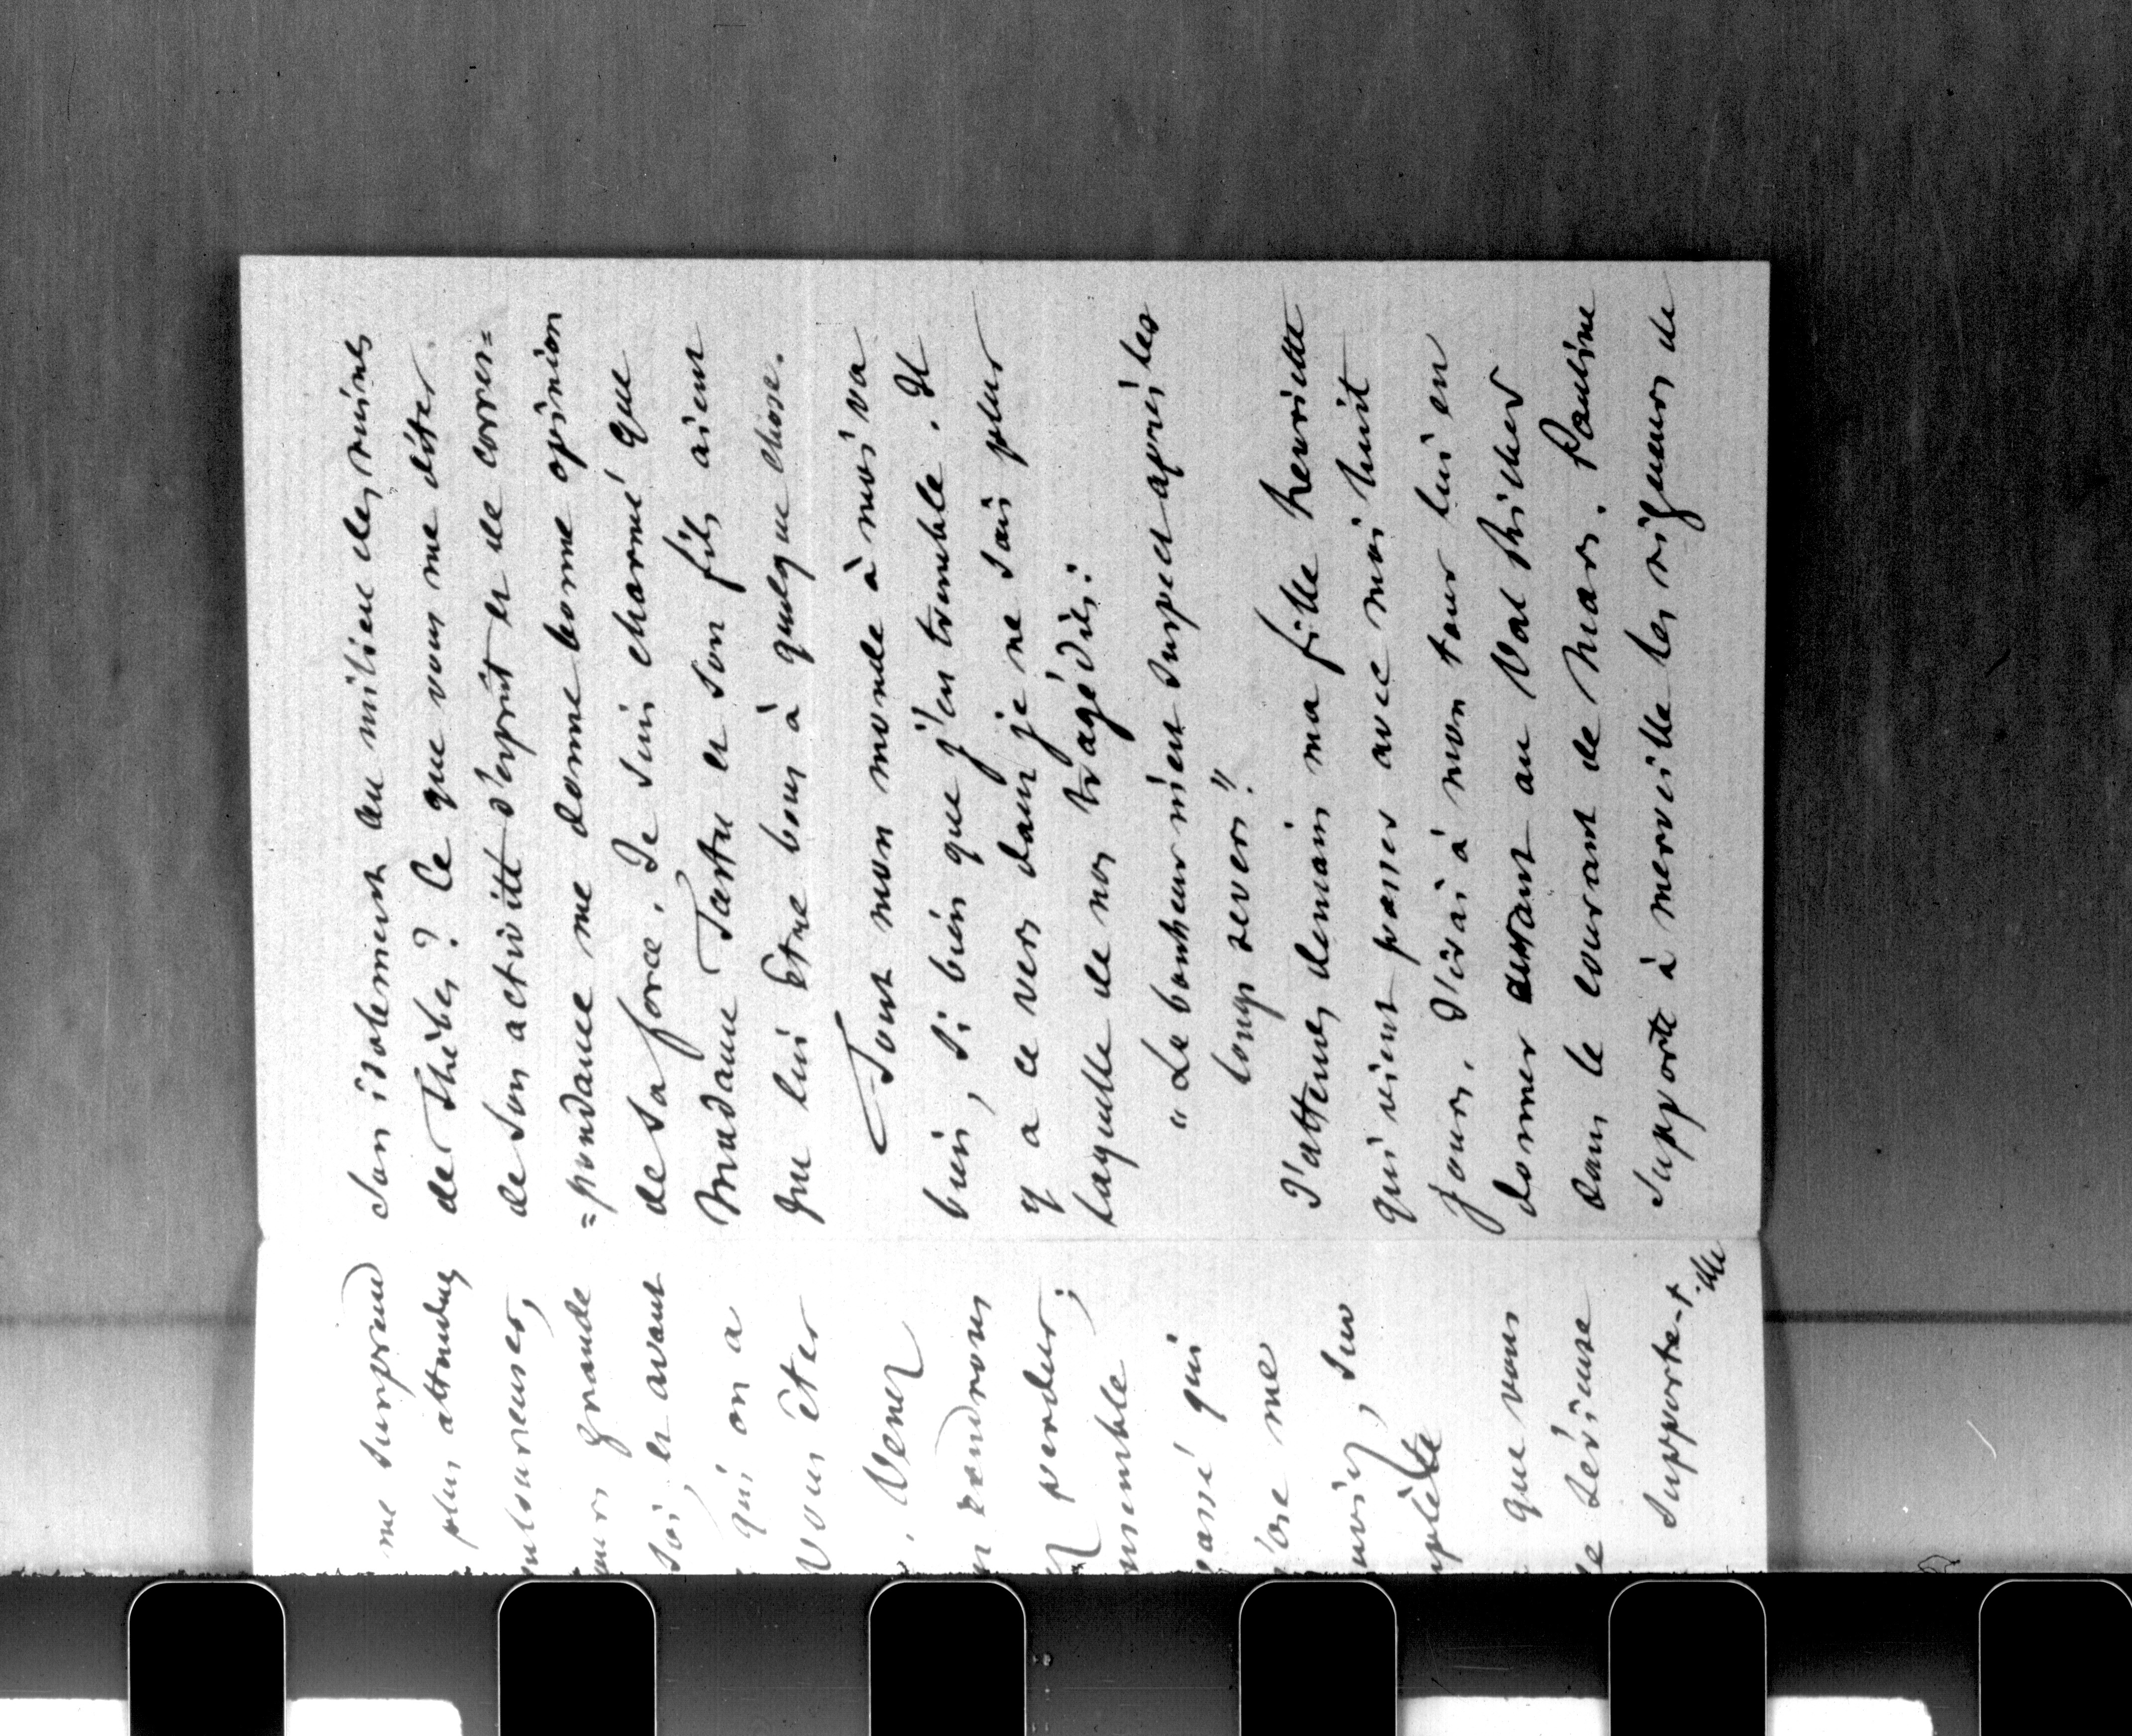 me surprend
plus attendues
grande
soi, et avant
qui on a
vous êtes
Venez
rendrons
perdu ;
ensemble
passé qui
j'ose me
sur
que vous
sérieuse
supporte-t-elle
son isolement au milieu des ruines
de Thèbes ? Ce que vous me dites
de son activité d'esprit et de corres=
=pondance me donne bonne opinion
de sa force. Je suis charmé que
Madame Tastu et son fils aient
pu lui être bons à quelque chose.
Tout mon monde à moi va
bien, si bien que j'en tremble. Il
y a ce vers dans je ne sais plus
laquelle de nos tragédies :
"Le bonheur m'est suspect après les
longs revers !"
J'attends demain ma fille henriette
qui vient passer avec moi huit
jours. J'irai à mon tour lui en
donner autant au Val Richer
dans le courant de Mars. Pauline
supporte à merveille les rigueurs de